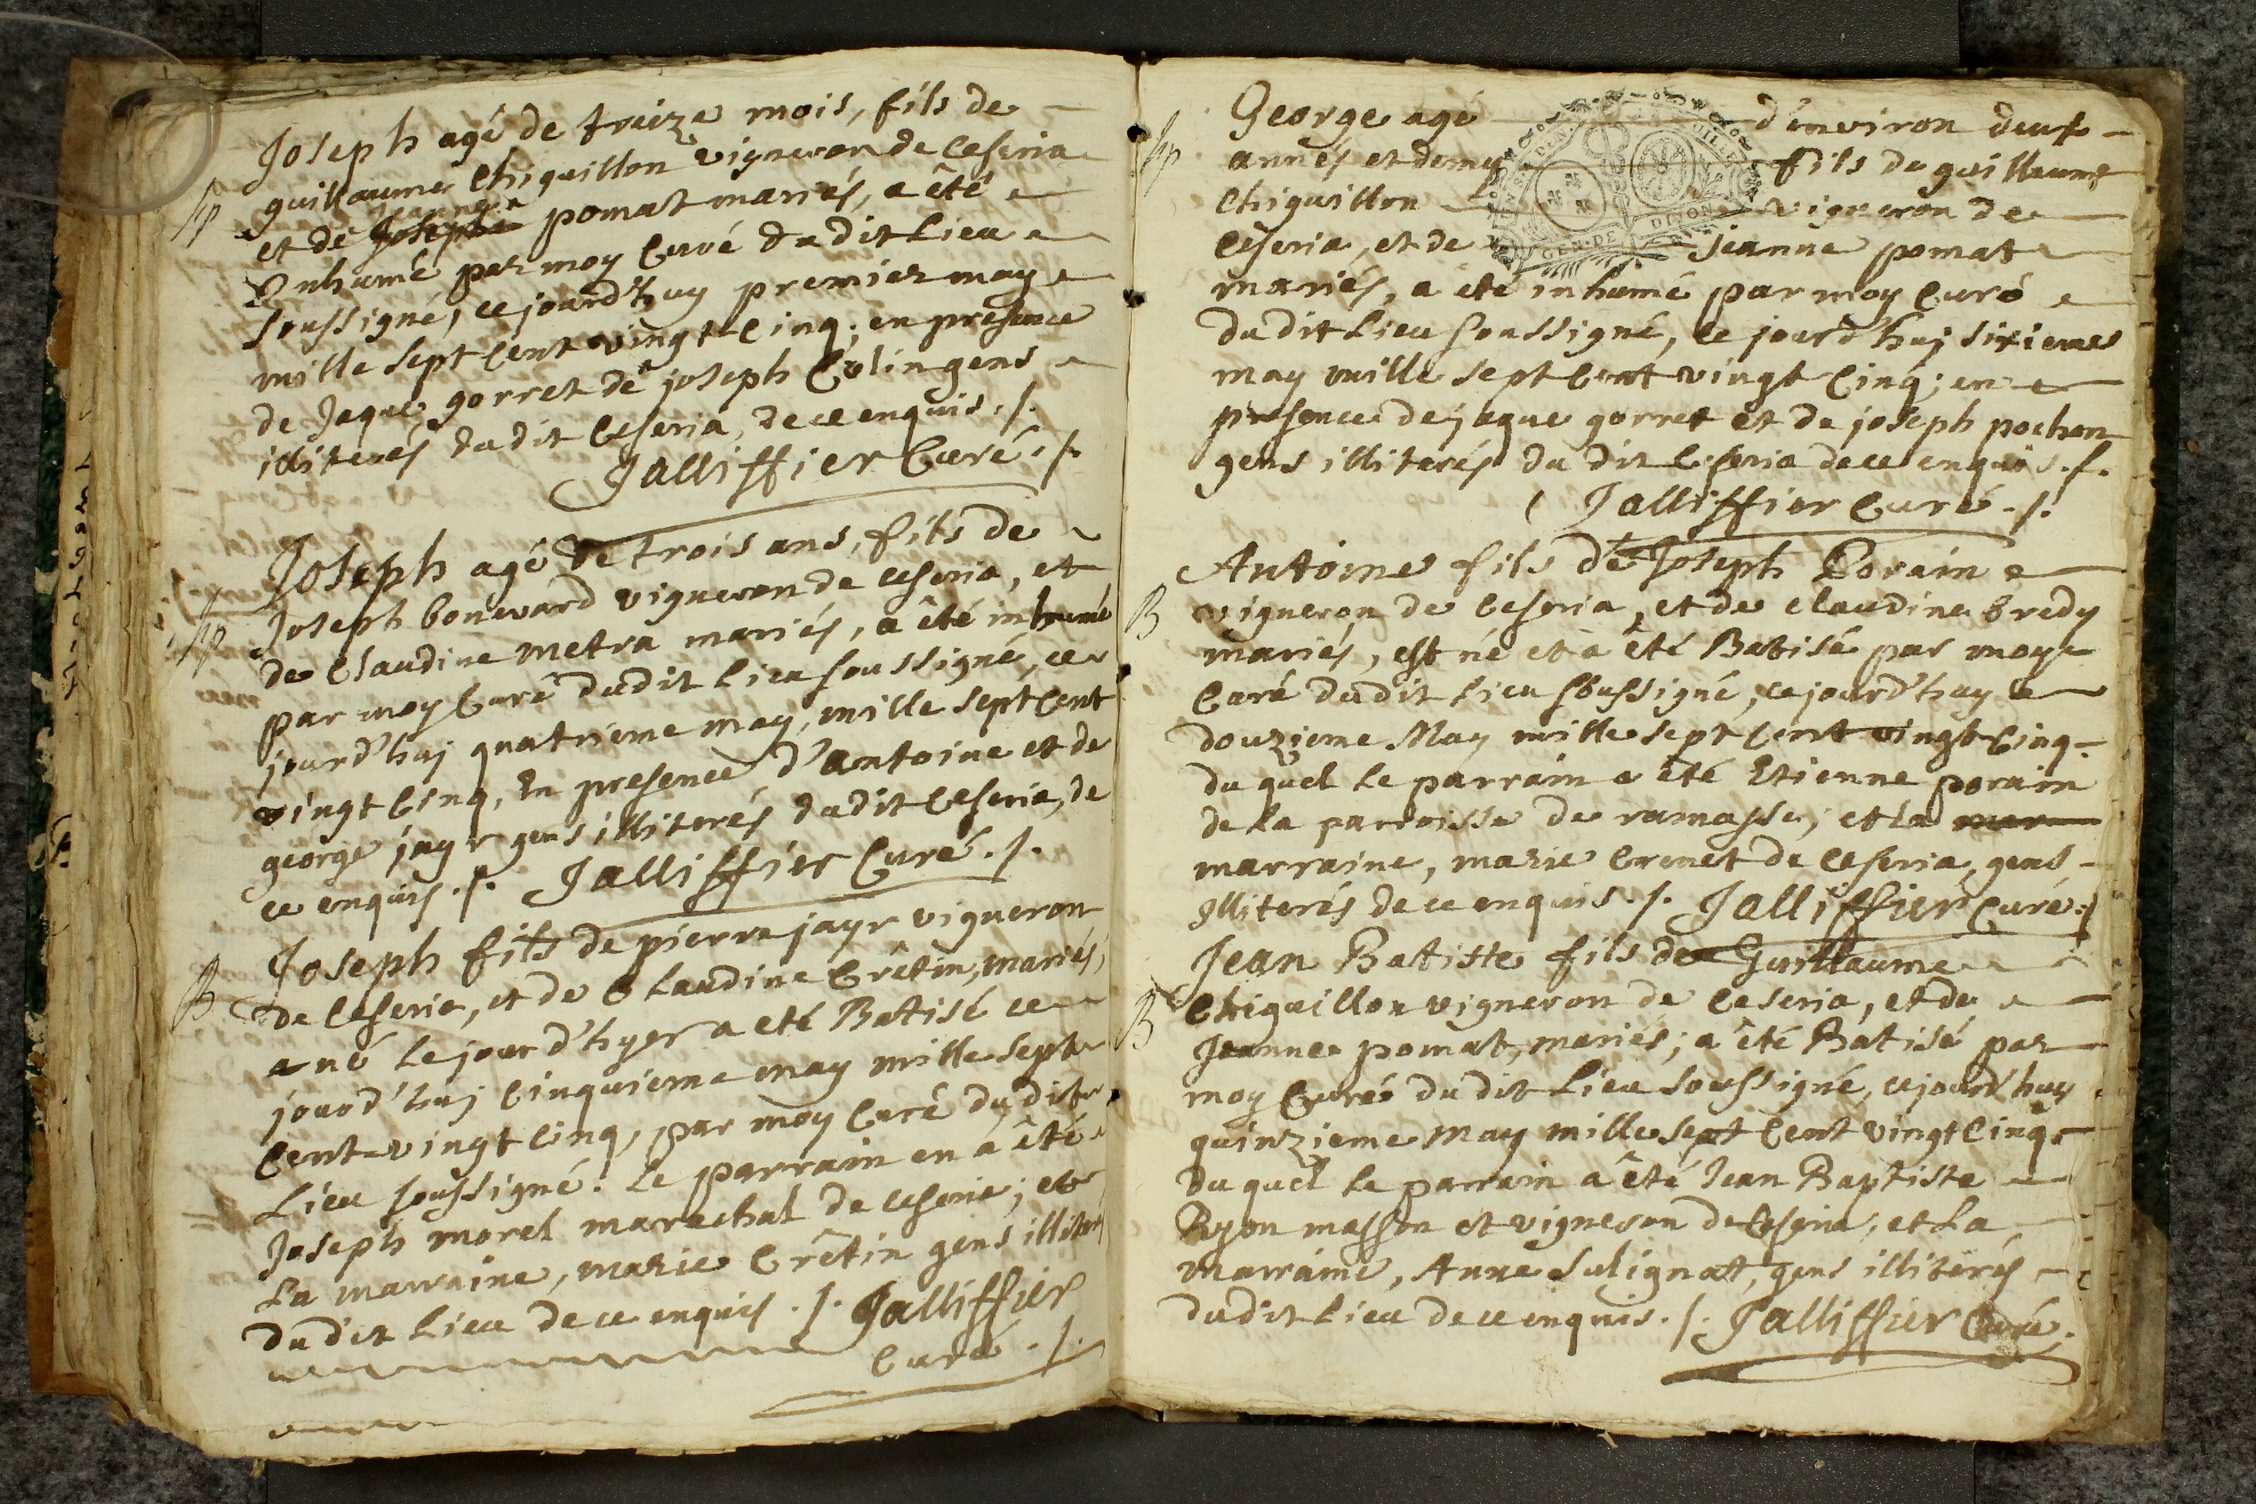 Joseph agé de treize mois, fils de
guillaume Chiquillon vigneron de Ceseria
Sp
Jeanne
et de Josephe pomat mariés, a êté
Inhumé par moy Curé du dit Lieu
soussigné, ce jourd'huy premier may
mille sept Cent vingt-Cinq; en presence
de Jaque gorret de joseph Colin gens
illiterés du dit Ceseria, de ce enquis ./.
Jalliffier Curé ./.
Joseph agé de trois ans, fils de
Joseph bonevard vigneron de Ceseria, et
Sp
de Claudine metra mariés, a êté inhumé
par moy Curé du dit Lieu soussigné, ce
jourd'huj quatrieme may, mille sept Cent
vingt Cinq, En presence d'antoine et de
george jayr gens illiterés du dit Ceseria, de
ce enquis ./. Jalliffier Curé ./.
Joseph fils de pierre jayr vigneron
B
de Ceseria, et de Claudine Crêtin, mariés,
a né le jour d'hyer a eté Batisé ce
jourd'huj Cinquieme may mille sept
Cent-vingt Cinq, par moy Curé du dit
Lieu soussigné. Le parrain en a êté
Joseph morel marechal de Ceseria; et
La marraine, marie Crêtin gens illiterés
du dit Lieu de ce enquis ./. Jalliffier
Curé ./.
George agé d'environ deux
Sp
annés et demy fils de guillaume
Chiquillon vigneron de
Ceseria, et de Jeanne pomat
GEN. DE DIJON
mariés, a été inhumé par moy Curé
du dit Lieu soussigné, ce jourd'huj sixieme
may mille sept Cent vingt Cinq; en
presence de jaque gorret et de joseph pochon
gens illiterés du dit Ceseria de ce enquis ./.
Jalliffier Curé ./.
Antoine fils de Joseph Porain
B
vigneron de Ceseria, et de Claudine bredy
mariés, est né et a êté Batisé par moy
Curé du dit Lieu soussigné, ce jourd'huy
douzieme May mille sept Cent vingt Cinq
du quel Le parrain a êté Etienne porain
de La parroisse de ramasse; et La mar
marraine, marie Crenet de Ceseria, gens
Illiterés de ce enquis ./. Jalliffier Curé ./.
Jean Batiste fils de Guillaume
B
Chiquillon vigneron de Ceseria, et de
Jeanne pomat, mariés; a êté Batisé par
moy Curé du dit Lieu soussigné, ce jourd'huy
quinzieme May mille sept Cent vingt Cinq
du quel Le parrain a êté Jean Baptiste
Ryon masson et vigneron de Ceseria, et La
marraine, Anne Sulignat, gens illiterés
du dit Lieu de ce enquis ./. Jalliffier Curé.